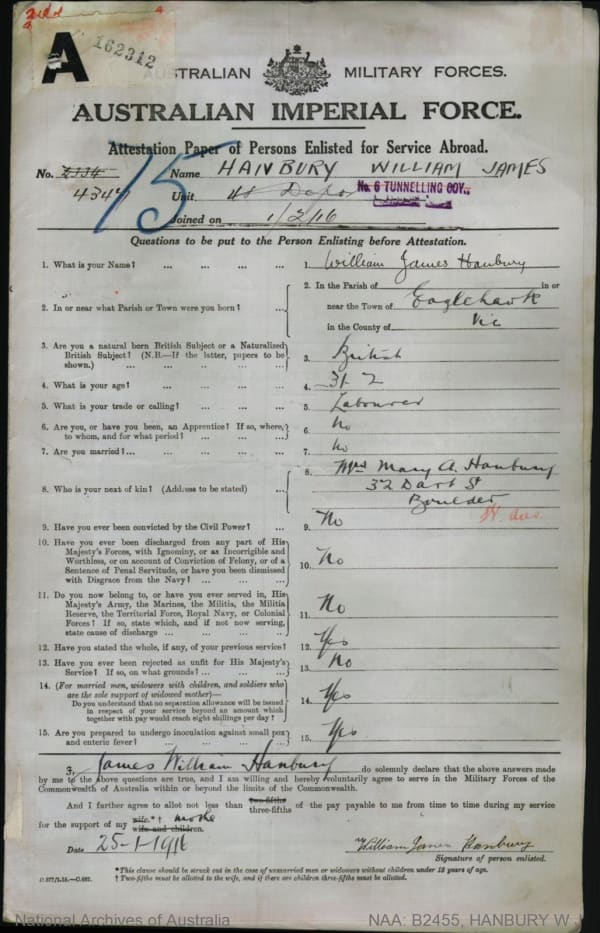 A
162312
AUSTRALIAN MILITARY FORCES.
AUSTRALIAN IMPERIAL FORCE.
Attestation Paper of Persons Enlisted for Service Abroad.
No. 2334 Name HANBURY WILLIAM JAMES
75
Unit 48 Depot No. 6 TUNNELLING COY.,
Joined on 1/2/16
Questions to be put to the Person Enlisting before Attestation.
1. What is your Name? ... ... ... ... 1. William James Hanbury
2. In or near what Parish or Town were you born? ... 2. In the Parish of in or
near the Town of Eaglehawk
in the County of Vic
3. Are you a natural born British Subject or a Naturalized
British Subject? (N.B.—If the latter, papers to be
shown.) ... ... ... ... 3. British
4. What is your age? ... ... ... ... 4. 31 2
5. What is your trade or calling? ... ... ... 5. Labourer
6. Are you, or have you been, an Apprentice? If so, where,
to whom, and for what period? ... ... ... 6. No
7. Are you married?... ... ... ... ... 7. No
8. Who is your next of kin? (Address to be stated) ... 8. Mrs Mary A. Hanbury
32 Dart St
Boulder
W. Aus.
9. Have you ever been convicted by the Civil Power? ... 9. No
10. Have you ever been discharged from any part of His
Majesty's Forces, with Ignominy, or as Incorrigible and
Worthless, or on account of Conviction of Felony, or of a
Sentence of Penal Servitude, or have you been dismissed
with Disgrace from the Navy? ... ... ... 10. No
11. Do you now belong to, or have you ever served in, His
Majesty's Army, the Marines, the Militia, the Militia
Reserve, the Territorial Force, Royal Navy, or Colonial
Forces? If so, state which, and if not now serving,
state cause of discharge ... ... ... ... 11. No
12. Have you stated the whole, if any, of your previous service? 12. Yes
13. Have you ever been rejected as unfit for His Majesty's
Service? If so, on what grounds? ... ... ... 13. No
14. (For married men, widowers with children, and soldiers who
are the sole support of widowed mother)—
Do you understand that no separation allowance will be issued
in respect of your service beyond an amount which
together with pay would reach eight shillings per day? 14. Yes
15. Are you prepared to undergo inoculation against small pox
and enteric fever? ... ... ... ... 15. Yes
I, James William Hanbury do solemnly declare that the above answers made
by me to the above questions are true, and I am willing and hereby voluntarily agree to serve in the Military Forces of the
Commonwealth of Australia within or beyond the limits of the Commonwealth.
And I further agree to allot not less than two-fifths three-fifths of the pay payable to me from time to time during my service
for the support of my wife.*†
wife and children.
Date 25-1-1916 William James Hanbury
Signature of person enlisted.
*This clause should be struck out in the case of unmarried men or widowers without children under 18 years of age.
† Two-fifths must be allotted to the wife, and if there are children three-fifths must be allotted.
National Archives of Australia NAA: B2455, HANBURY W J